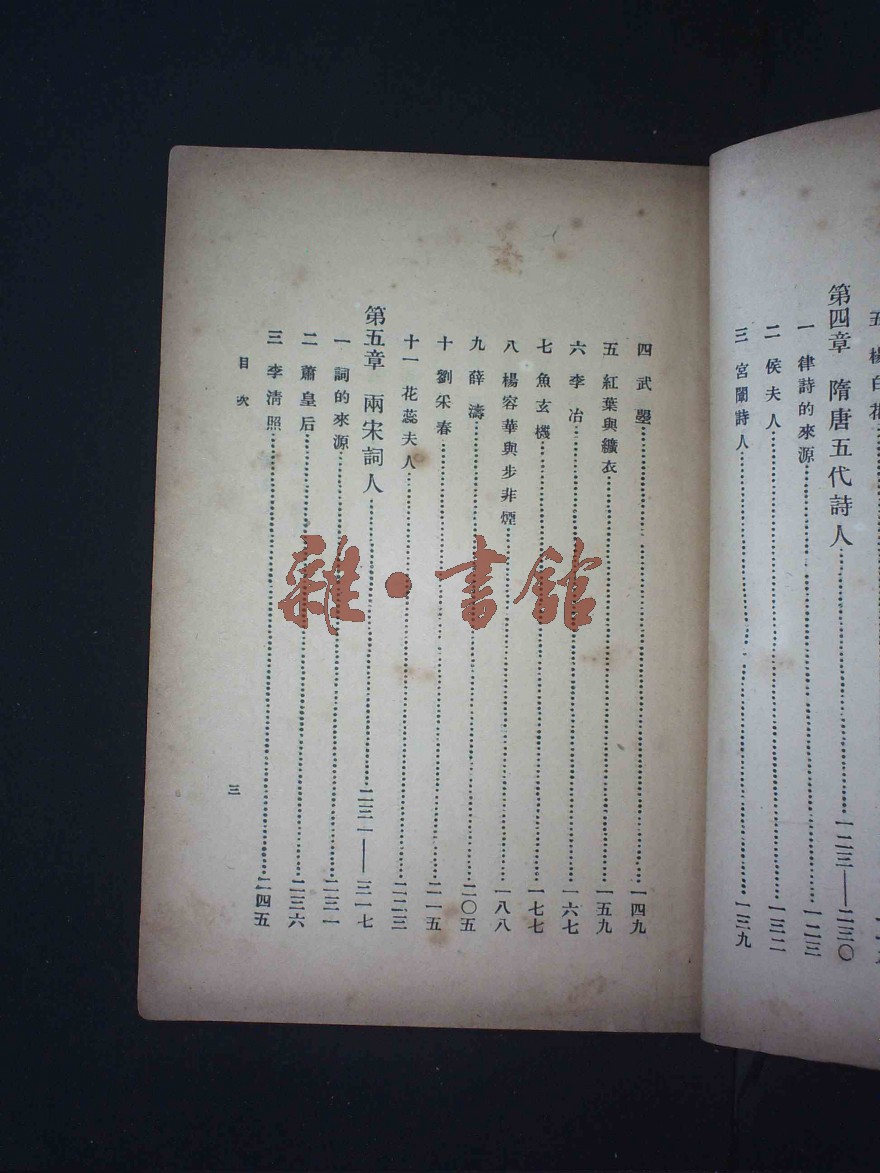 五 楊白花
第四章 隋唐五代詩人……一二三——二三〇
一 律詩的來源……一二三
二 侯夫人……一三二
三 宮闈詩人……一三九
四 武曌……一四九
五 紅葉與纊衣……一五九
六 李冶……一六七
七 魚玄機……一七七
八 楊容華與步非煙……一八八
九 薛濤……二〇五
十 劉采春……二一五
十一 花蕊夫人……二二三
第五章 兩宋詞人……二三一——三一七
一 詞的來源……二三一
二 蕭皇后……二三六
三 李清照……二四五
目次
三
雜·書館